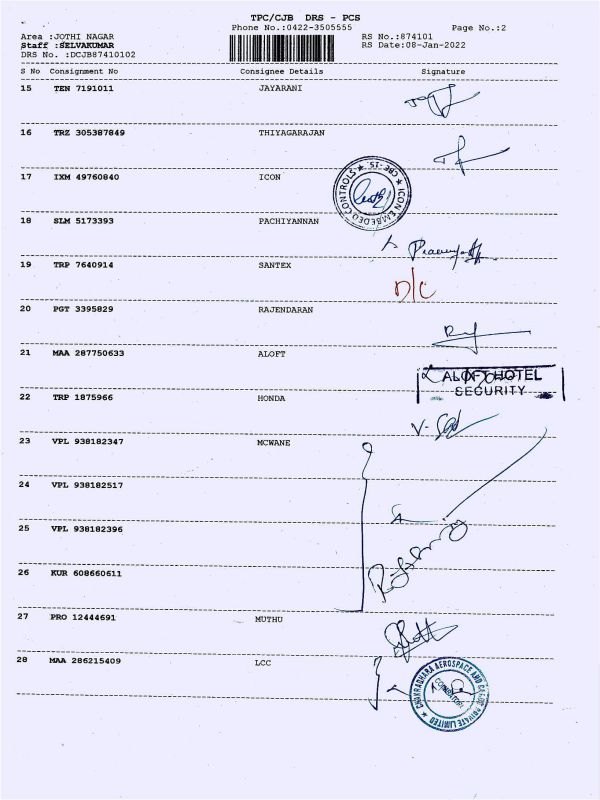 TPC/CJB DRS - PCS
Phone No.:0422-3505555 Page No.:2
Area :JOTHI NAGAR RS No.:874101
Staff :SELVAKUMAR RS Date:08-Jan-2022
DRS No. :DCJB87410102
S No Consignment No Consignee Details Signature
15 TEN 7191011 JAYARANI
16 TRZ 305387849 THIYAGARAJAN
17 IXM 49760840 ICON
ICON EMBEDED CONTROLS ★ CBE-15 ★
18 SLM 5173393 PACHIYANNAN
19 TRP 7640914 SANTEX
D/C
20 PGT 3395829 RAJENDARAN
21 MAA 287750633 ALOFT
ALOFT HOTEL
SECURITY
22 TRP 1875966 HONDA
23 VPL 938182347 MCWANE
24 VPL 938182517
25 VPL 938182396
26 KUR 608660611
27 PRO 12444691 MUTHU
28 MAA 286215409 LCC
CHAKRADHARA AEROSPACE AND CARGO PRIVATE LIMITED ★
COIMBATORE